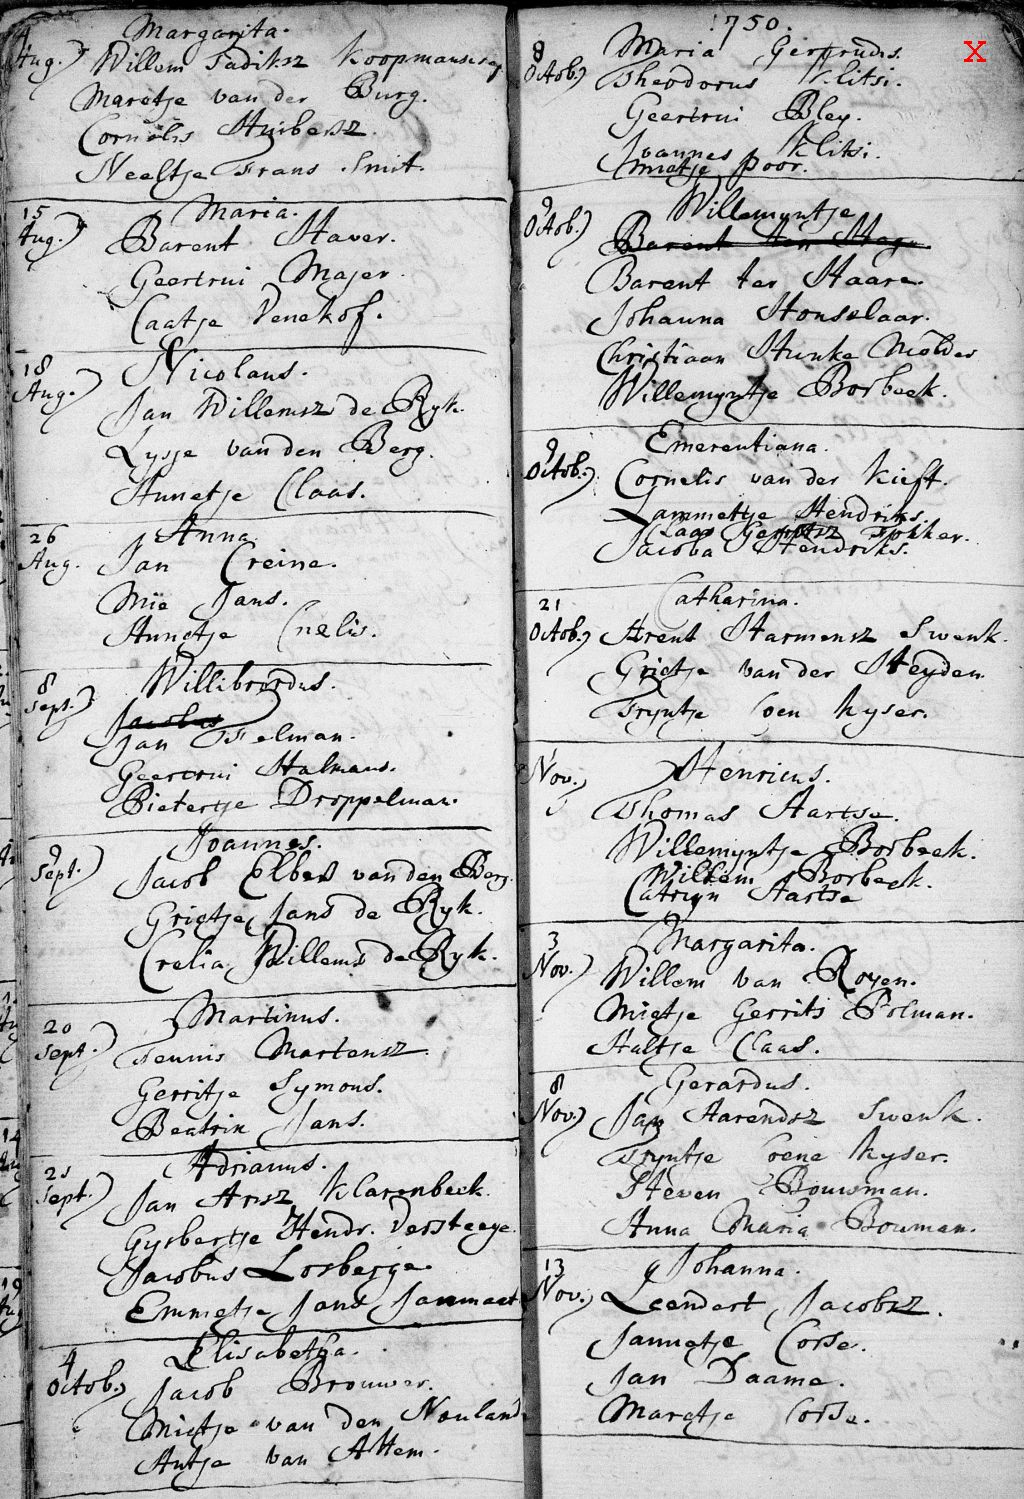 4 Aug. Margarita.
Willem Koopmans
Maretje van der Burg.
Cornelis Huibertsz.
Neeltje Frans Smit.
15 Aug. Maria.
Barent Staver.
Geertrui Majer.
Caatje Venekof.
18 Aug. Nicolaus.
Jan Willemsz de Ryk.
Lysje van den Berg.
Annetje Claas.
26 Aug. Anna.
Jan Creine.
Mie Jans.
Annetje Cnelis.
8 Sept. Willibrordus.
Jacobus
Jan Felman.
Geertrui Halmans.
Pietertje Droppelman.
9 Sept. Joannes.
Jacob Elberts van den Berg.
Grietje Jans de Ryk.
Crelia Willems de Ryk.
20 Sept. Martinus.
Teunis Martensz.
Gerritje Symons.
Beatrix Jans.
21 Sept. Adrianus.
Jan Arisz Klarenbeek.
Gysbertje Hendr. Versteege.
Jacobus Losberge.
Emmetje Jans Janmaet
4 Octob. Elisabetha.
Jacob Brouwer.
Mietje van den Nouland
Antje van Attem.
1750.
X
8 Octob. Maria Gertrudis.
Theodorus Klitsi.
Geertrui Bley.
Joannes Klitsi.
Mietje Poor.
9 Octob. Willemyntje
Barent ter Hag
Barent ter Haare.
Johanna Honselaar.
Christiaan Hunke Molder
Willemyntje Borbeek.
9 Octob. Emerentiana.
Cornelis van der Kieft.
Lammetje Hendriks.
Claas Fokker.
Jacoba Hendriks.
21 Octob. Catharina.
Arent Harmensz Swenk.
Grietje van der Heyden
Tryntje Coen Kyser.
1 Nov. Henricus.
Thomas Aartse.
Willemyntje Borbeek.
Willem Borbeek.
Catryn Aartse
3 Nov. Margarita.
Willem van Royen.
Mietje Gerrits Polman.
Aaltje Claas.
8 Nov. Gerardus.
Jan Aarendsz Swenk.
Tryntje Coene Kyser.
Steven Bouwman.
Anna Maria Bouman.
13 Nov. Johanna.
Leendert Jacobsz.
Jannetje Corse.
Jan Daame.
Maretje Corse.